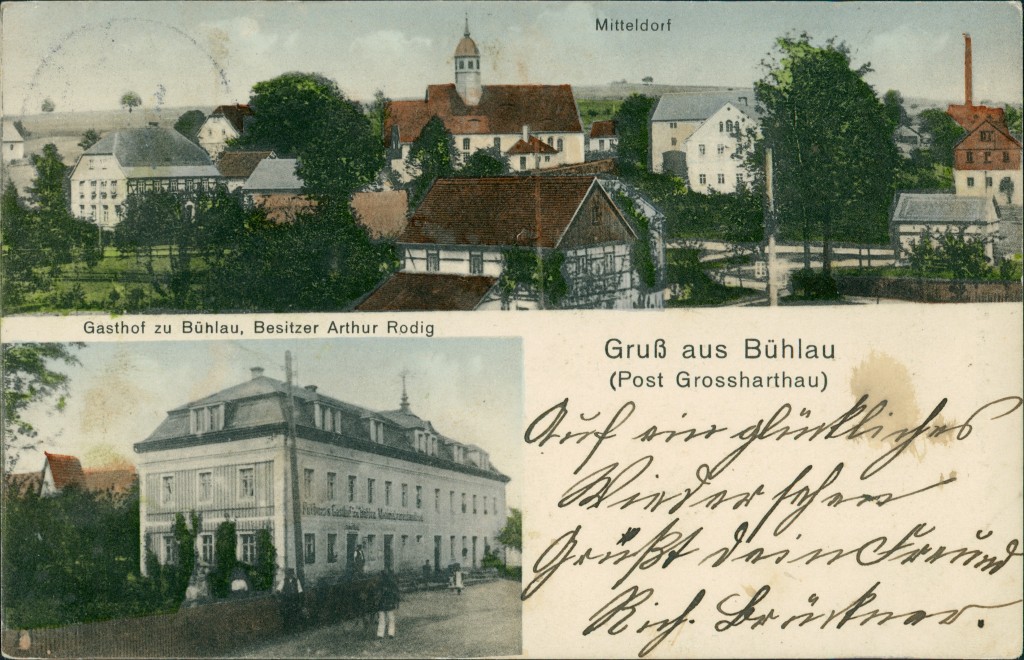 Mitteldorf
Gasthof zu Bühlau, Besitzer Arthur Rodig
Gruß aus Bühlau
(Post Grossharthau)
Auf ein glückliches
Wiedersehen
Grüßt dein Freund
Rich. Brückner.